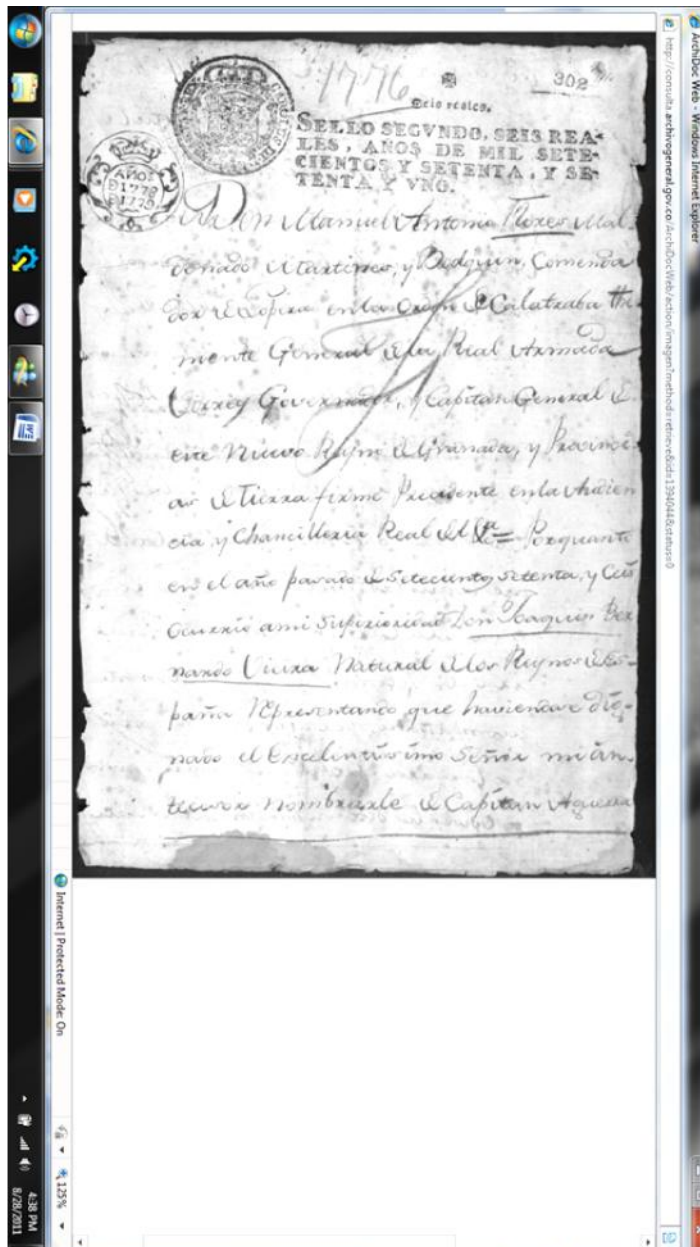 ArchiDoc Web - Windows Internet Explorer
http://consulta.archivogeneral.gov.co/ArchiDocWeb/action/imagen?method=retrieve&id=1394044&status=0
1776
302
Seis reales.
SELLO SEGVNDO, SEIS REA-
LES, AÑOS DE MIL SETE-
CIENTOS Y SETENTA, Y SE-
TENTA Y VNO.
AÑOS
D1778
D1779
Don Manuel Antonio Flores Mal
donado Martinez, y Bodquin, Comenda
dor de Lopera en la Orden de Calatraba The
niente General de la Real Armada
Virrey Governador, y Capitan General de
este Nuevo Reyno de Granada, y Provinci
as de Tierra firme Precidente en la Audien
cia, y Chancilleria Real de = Porquanto
en el año pasado de setecientos setenta, y
Ocurrio a mi Superioridad Don Joaquin Ber
nardo Natural de los Reynos de Es-
paña Representando que haviendose dig-
nado el Excelentisimo Señor mi an
tecesor nombrarle de Capitan Aguerra
Internet | Protected Mode: On
125%
4:38 PM
8/28/2011